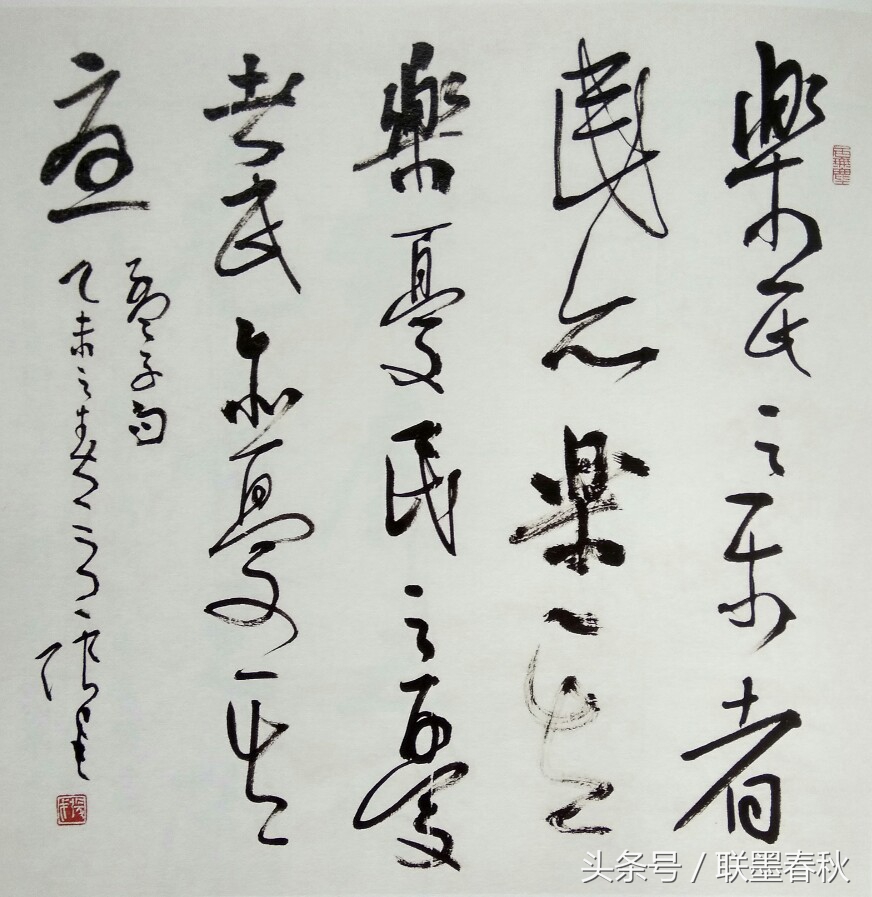 樂民之乐者
民亦樂其
樂憂民之憂
者民亦憂其
憂
孟子句
乙未之春 張
头条号 / 联墨春秋